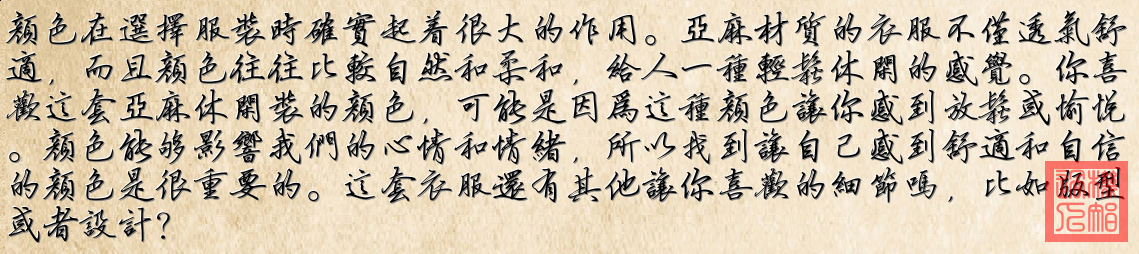 顏色在選擇服裝時確實起着很大的作用。亞麻材质的衣服不僅透氣舒
適，而且顏色往往比較自然和柔和，給人一種輕鬆休閑的感覺。你喜
歡這套亞麻休閑裝的顏色，可能是因爲這種顏色讓你感到放鬆或愉悅
。顏色能够影響我們的心情和情緒，所以找到讓自己感到舒適和自信
的顏色是很重要的。這套衣服還有其他讓你喜歡的細節嗎，比如版型
或者設計？